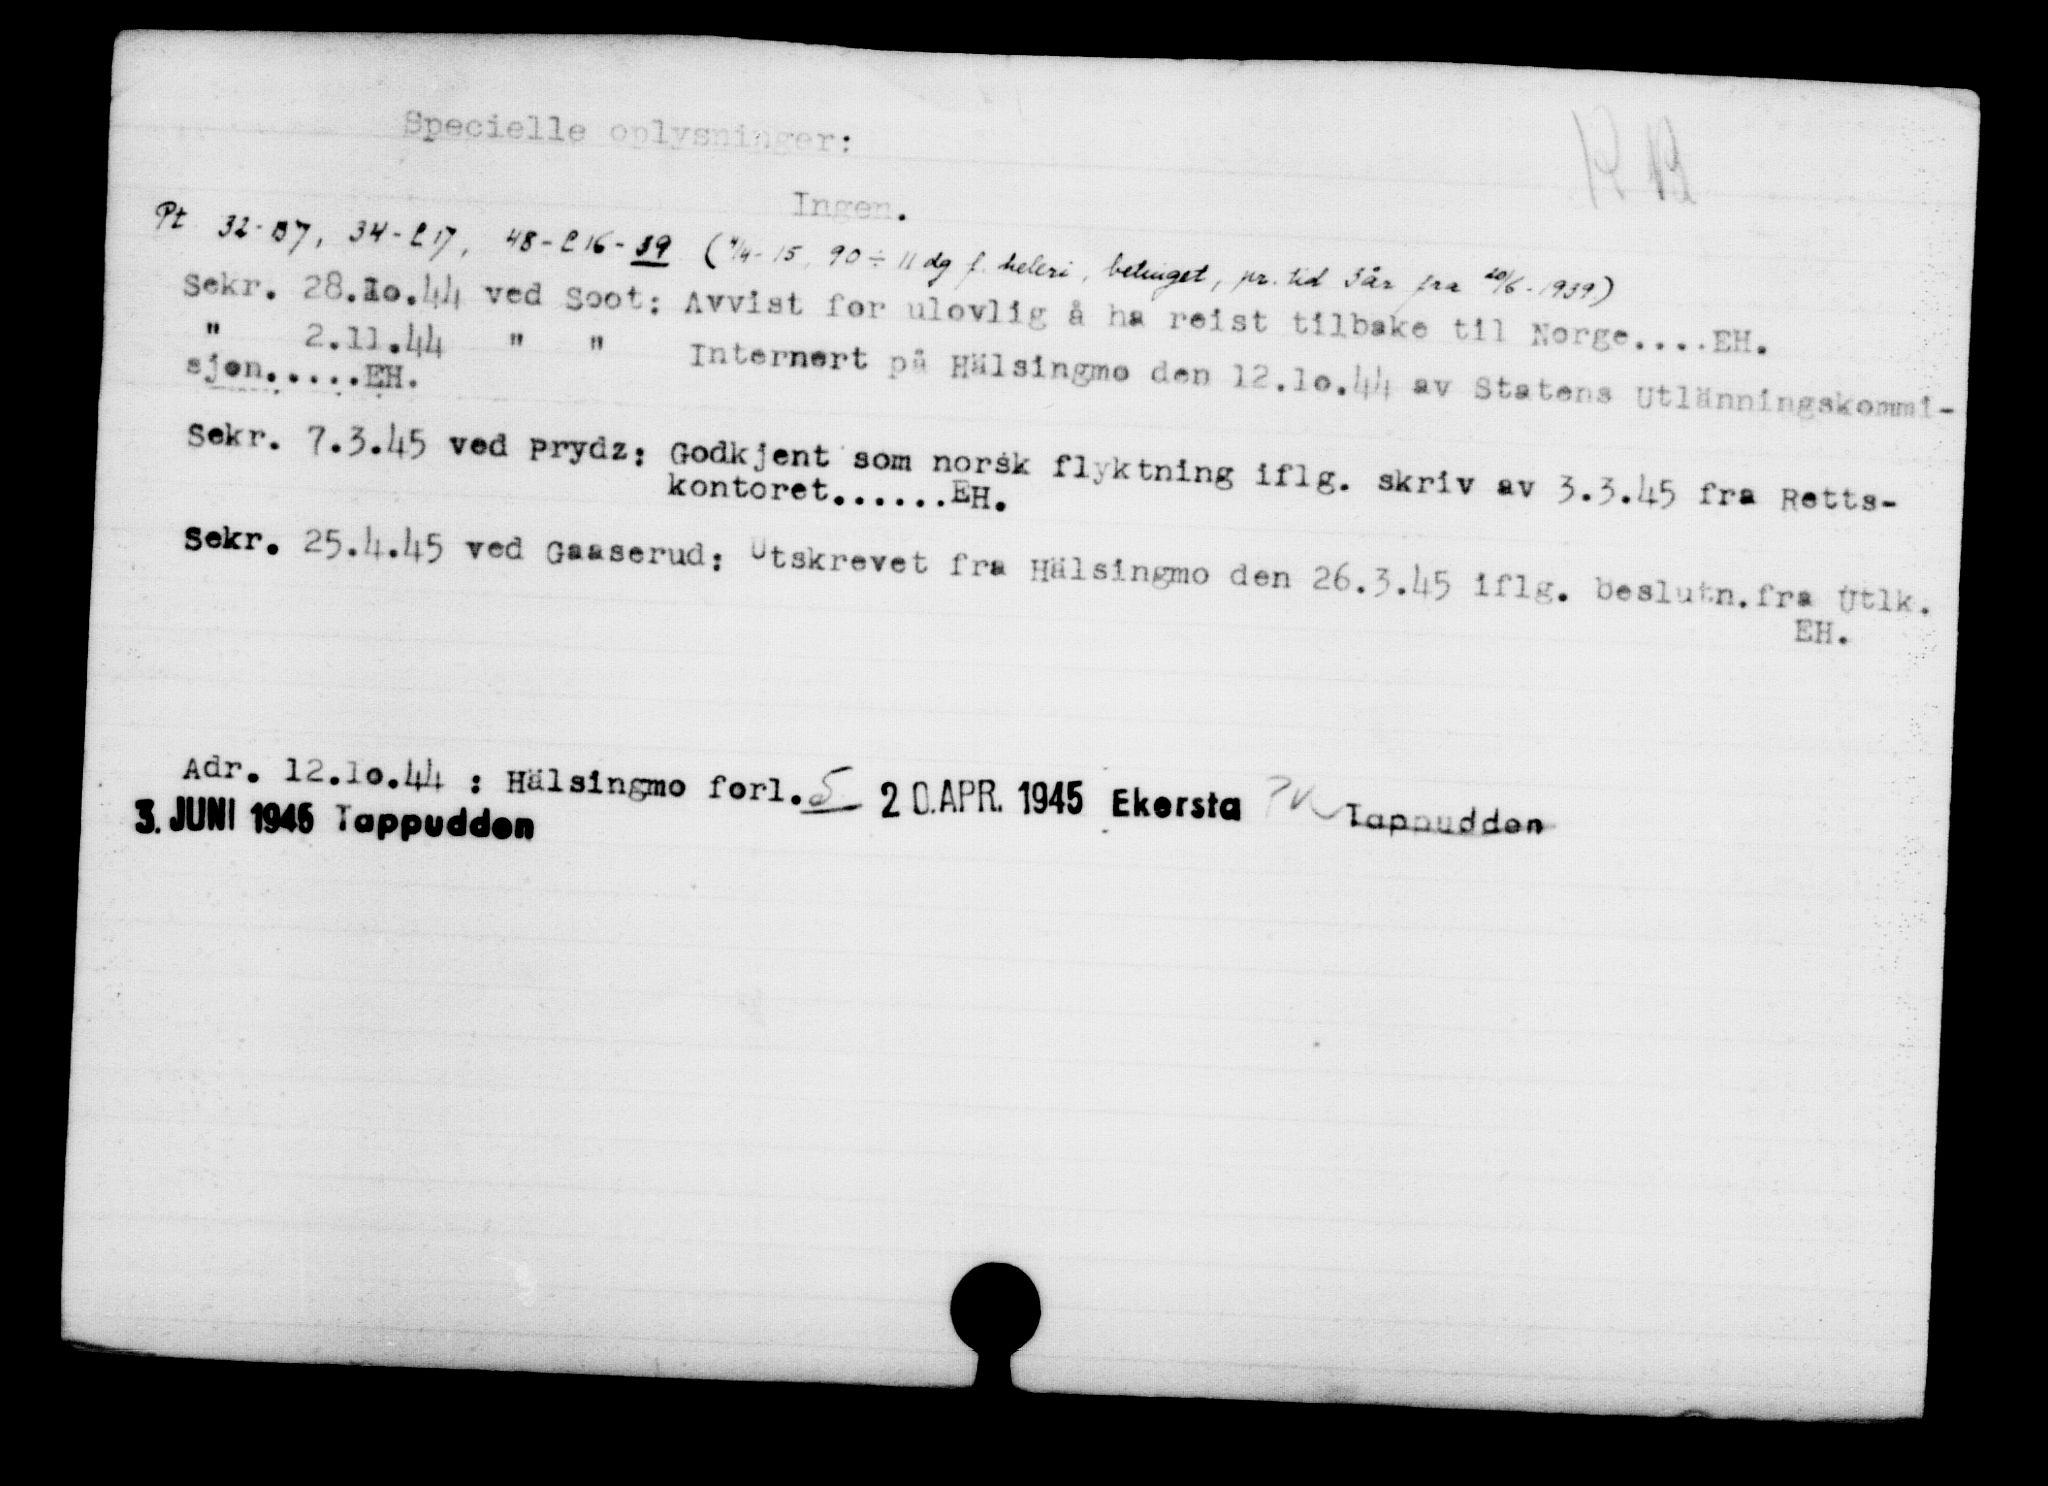 Specielle oplysninger:
Ingen.
Pt 32-B7, 34-C17, 48-C16-39 (4/4-15, 90 ÷ 11 dg f. heleri, betinget, pr. tid 3 år fra 20/6-1939)
Sekr. 28.10.44 ved Soot: Avvist for ulovlig å ha reist tilbake til Norge....EH.
" 2.11.44 " " Internert på Hälsingmo den 12.10.44 av Statens Utlänningskommi-
sjon.....EH.
Sekr. 7.3.45 ved Prydz: Godkjent som norsk flyktning iflg. skriv av 3.3.45 fra Retts-
kontoret......EH.
Sekr. 25.4.45 ved Gaaserud: Utskrevet fra Hälsingmo den 26.3.45 iflg. beslutn.fra Utlk.
EH.
Adr. 12.10.44 : Hälsingmo forl. 5 20.APR. 1945 Ekersta Tappudden
3. JUNI 1945 Tappudden